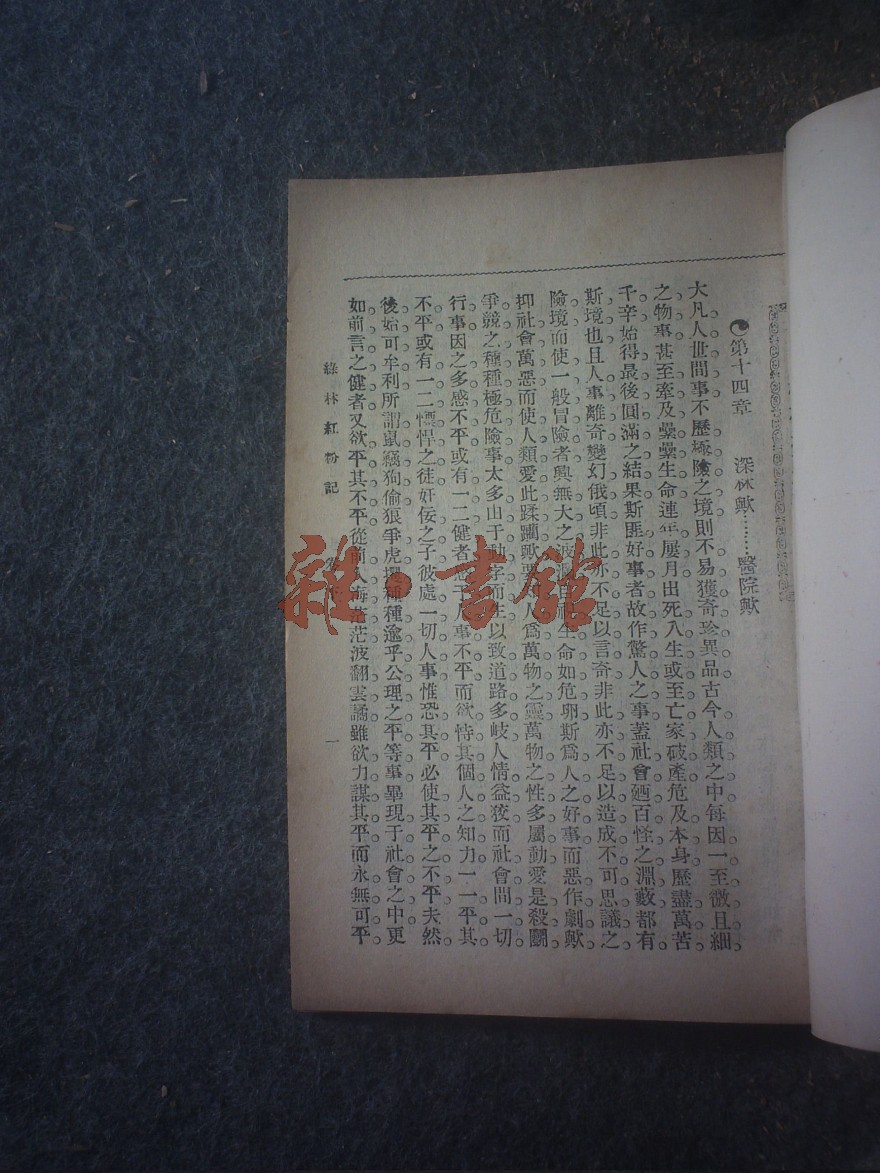 第十四章　深林歟………醫院歟
大凡人世間事不歷極險之境則不易獲奇珍異品古今人類之中每因一至微且細
之物事甚至牽及纍纍生命連年屢月出死入生或至亡家破產危及本身歷盡萬苦
千辛始得最後圓滿之結果斯匪好事者故作驚人之事蓋社會廼百怪之淵藪都有
斯境也且人事離奇變幻俄頃非此亦不足以言奇非此亦不足以造成不可思議之
險境而使一般冒險者興無大之波瀾生命如危卵斯爲人之好事而惡作劇歟
抑社會萬惡而使人類愛此蹂躪歟人爲萬物之靈萬物之性多屬動愛是殺鬭
爭競之種種極危險事太多由于動字而生以致道路多岐人情益狡而社會間一切
行事因之多感不平或有一二健者感于人事不平而欲恃其個人之知力一一平其
不平或有一二慓悍之徒奸佞之子彼處一切人事惟恐其平必使其平之不平夫然
後始可牟利所謂鼠竊狗偷狼爭虎攫種種逾乎公理之平等事畢現于社會之中更
如前言之健者又欲平其不平從前人海茫茫波翻雲譎雖欲力謀其平而永無可平
綠林紅粉記
一
雜·書館